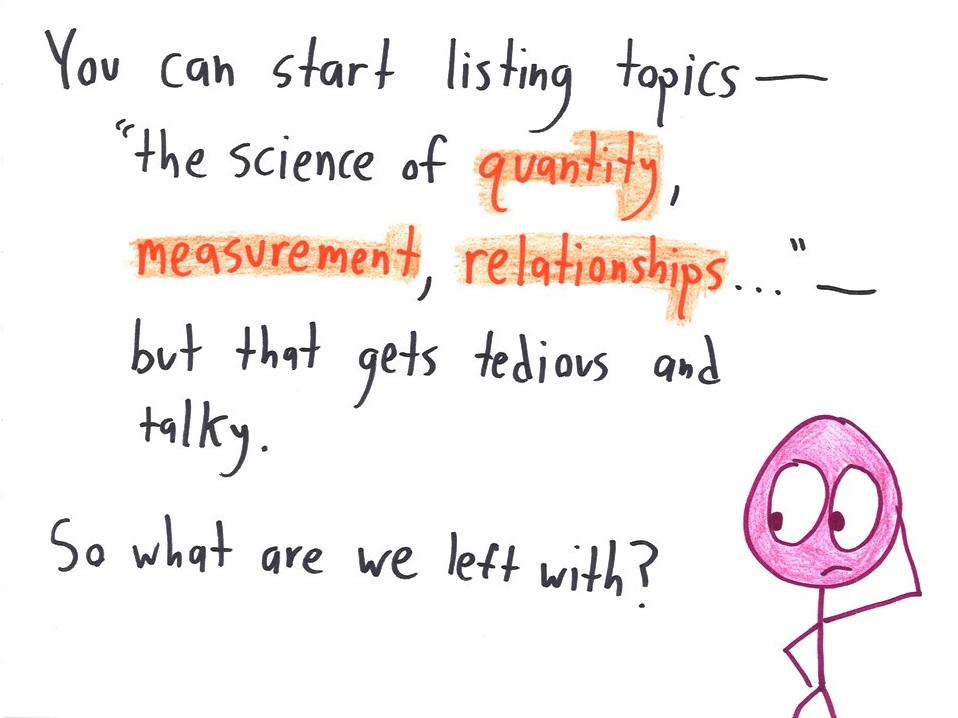 You can start listing topics—
“the science of quantity,
measurement, relationships...”—
but that gets tedious and
talky.
So what are we left with?